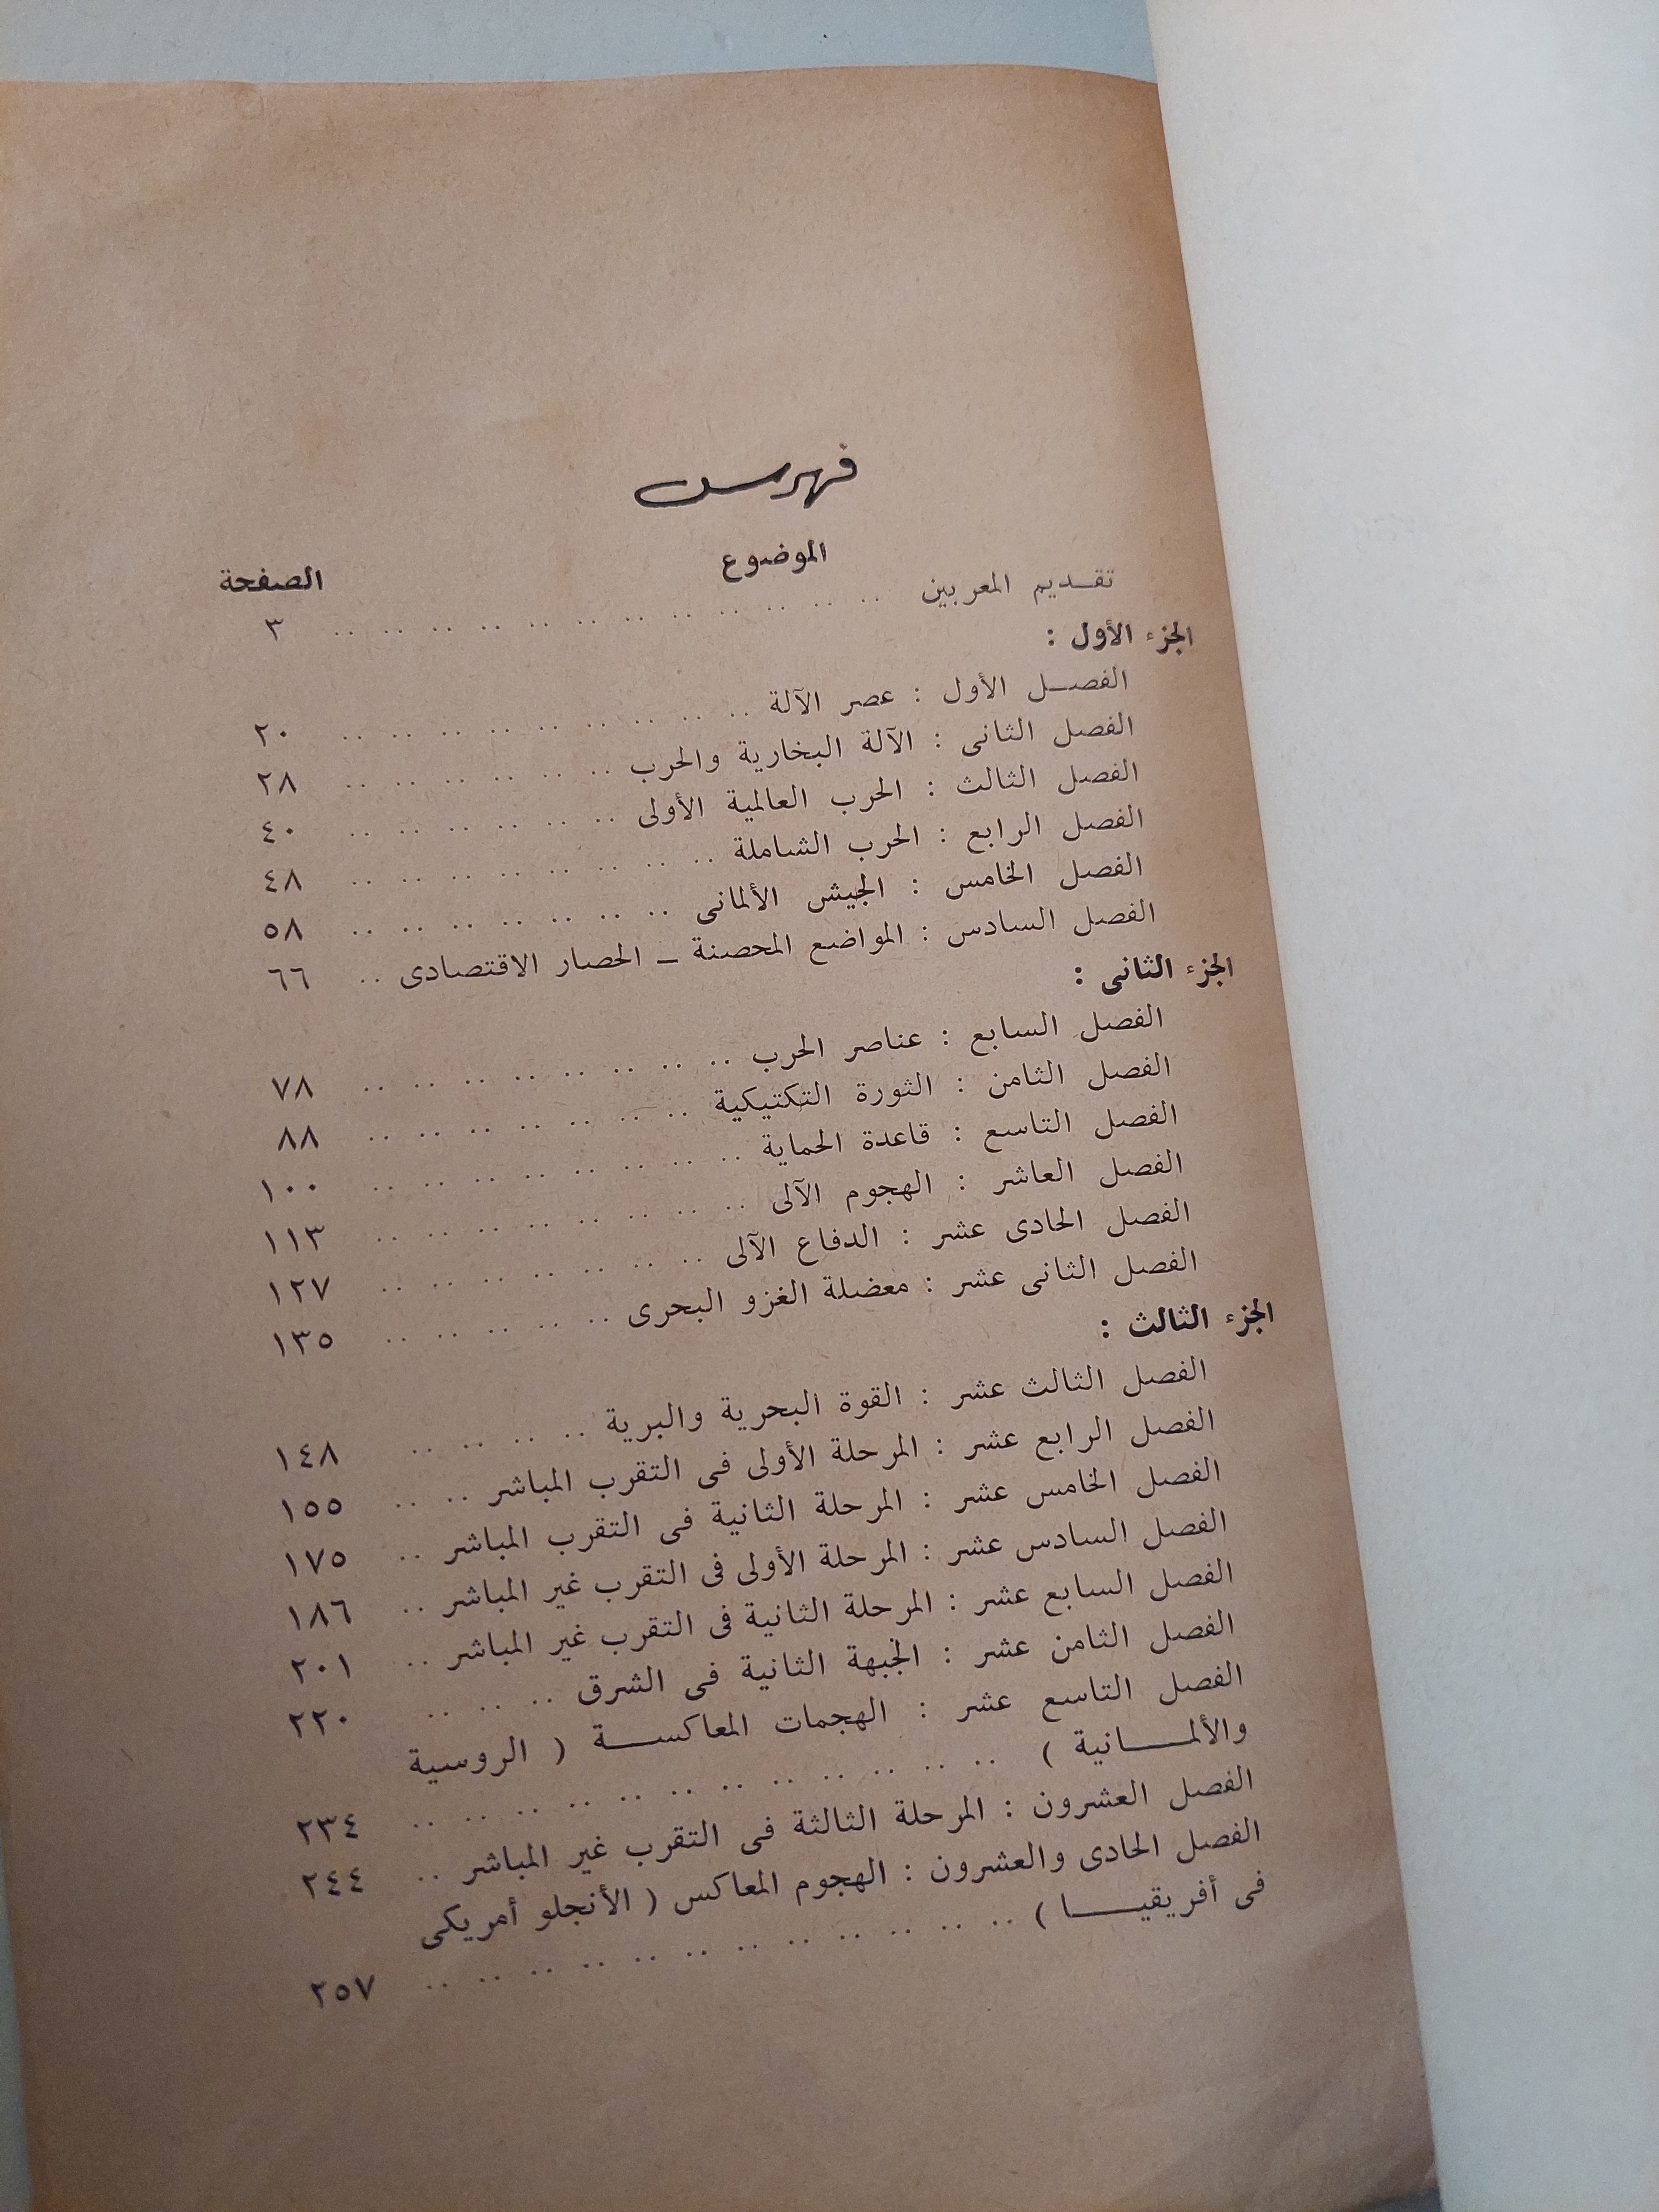 فهرس
الموضوع الصفحة
تقـديم المعربين .. .. .. .. .. .. .. .. .. .. .. .. ٣
الجزء الأول :
الفصـل الأول : عصر الآلة .. .. .. .. .. .. .. .. .. ٢٠
الفصل الثانى : الآلة البخارية والحرب .. .. .. .. .. .. ٢٨
الفصل الثالث : الحرب العالمية الأولى .. .. .. .. .. .. ٤٠
الفصل الرابع : الحرب الشاملة .. .. .. .. .. .. .. .. ٤٨
الفصل الخامس : الجيش الألمانى .. .. .. .. .. .. .. ٥٨
الفصل السادس : المواضع المحصنة ــ الحصار الاقتصادى .. ٦٦
الجزء الثانى :
الفصل السابع : عناصر الحرب .. .. .. .. .. .. .. .. ٧٨
الفصل الثامن : الثورة التكتيكية .. .. .. .. .. .. .. ٨٨
الفصل التاسع : قاعدة الحماية .. .. .. .. .. .. .. .. ١٠٠
الفصل العاشر : الهجوم الآلى .. .. .. .. .. .. .. .. ١١٣
الفصل الحادى عشر : الدفاع الآلى .. .. .. .. .. .. .. ١٢٧
الفصل الثانى عشر : معضلة الغزو البحرى .. .. .. .. .. ١٣٥
الجزء الثالث :
الفصل الثالث عشر : القوة البحرية والبرية .. .. .. .. ١٤٨
الفصل الرابع عشر : المرحلة الأولى فى التقرب المباشر .. .. ١٥٥
الفصل الخامس عشر : المرحلة الثانية فى التقرب المباشر .. ١٧٥
الفصل السادس عشر : المرحلة الأولى فى التقرب غير المباشر .. ١٨٦
الفصل السابع عشر : المرحلة الثانية فى التقرب غير المباشر .. ٢٠١
الفصل الثامن عشر : الجبهة الثانية فى الشرق .. .. .. ٢٢٠
الفصل التاسع عشر : الهجمات المعاكســة ( الروسية
والألمــــانية ) .. .. .. .. .. .. .. .. .. .. .. .. ٢٣٤
الفصل العشرون : المرحلة الثالثة فى التقرب غير المباشر .. ٢٤٤
الفصل الحادى والعشرون : الهجوم المعاكس ( الأنجلو أمريكى
فى أفريقيــــا ) .. .. .. .. .. .. .. .. .. .. .. .. ٢٥٧